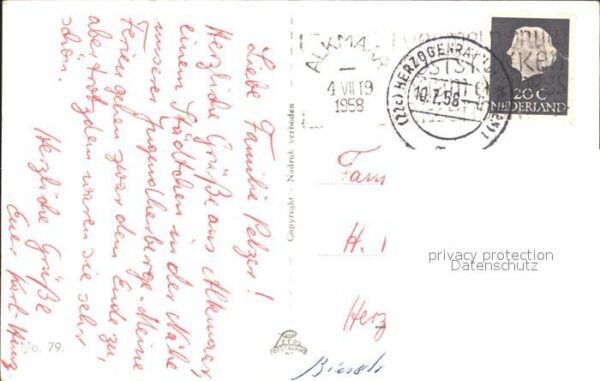 Liebe Familie Pelzer!
Herzliche Grüße aus Alkmaar,
einem Städtchen in der Nähe
unserer Jugendherberge. Meine
Ferien gehen zwar dem Ende zu,
aber trotzdem waren sie sehr
schön.
Herzliche Grüße
Euer Karl-Heinz
No. 79.
Copyright - Nadruk verboden
ALKMAAR
4 VII 19
1958
(22c) HERZOGENRATH
10.7.58
20 C
NEDERLAND
Fam
H.
Herz
privacy protection
Datenschutz